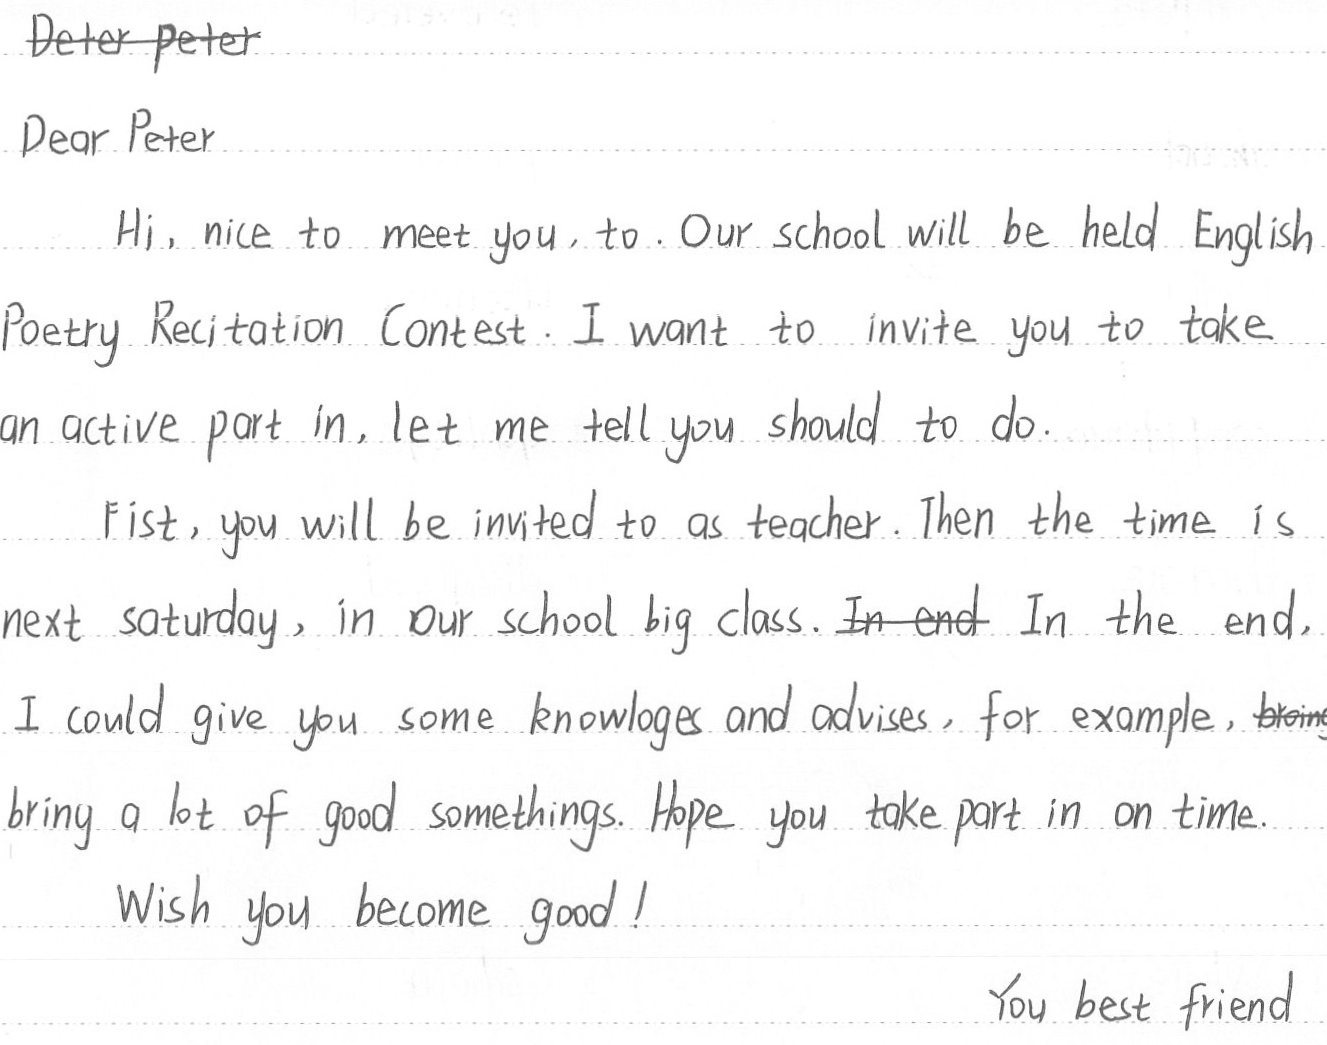 Deter peter
Dear Peter
Hi, nice to meet you, to. Our school will be held English
Poetry Recitation Contest. I want to invite you to take
an active part in, let me tell you should to do.
Fist, you will be invited to as teacher. Then the time is
next saturday, in our school big class. In end In the end,
I could give you some knowloges and advises, for example, broing
bring a lot of good somethings. Hope you take part in on time.
Wish you become good!
You best friend